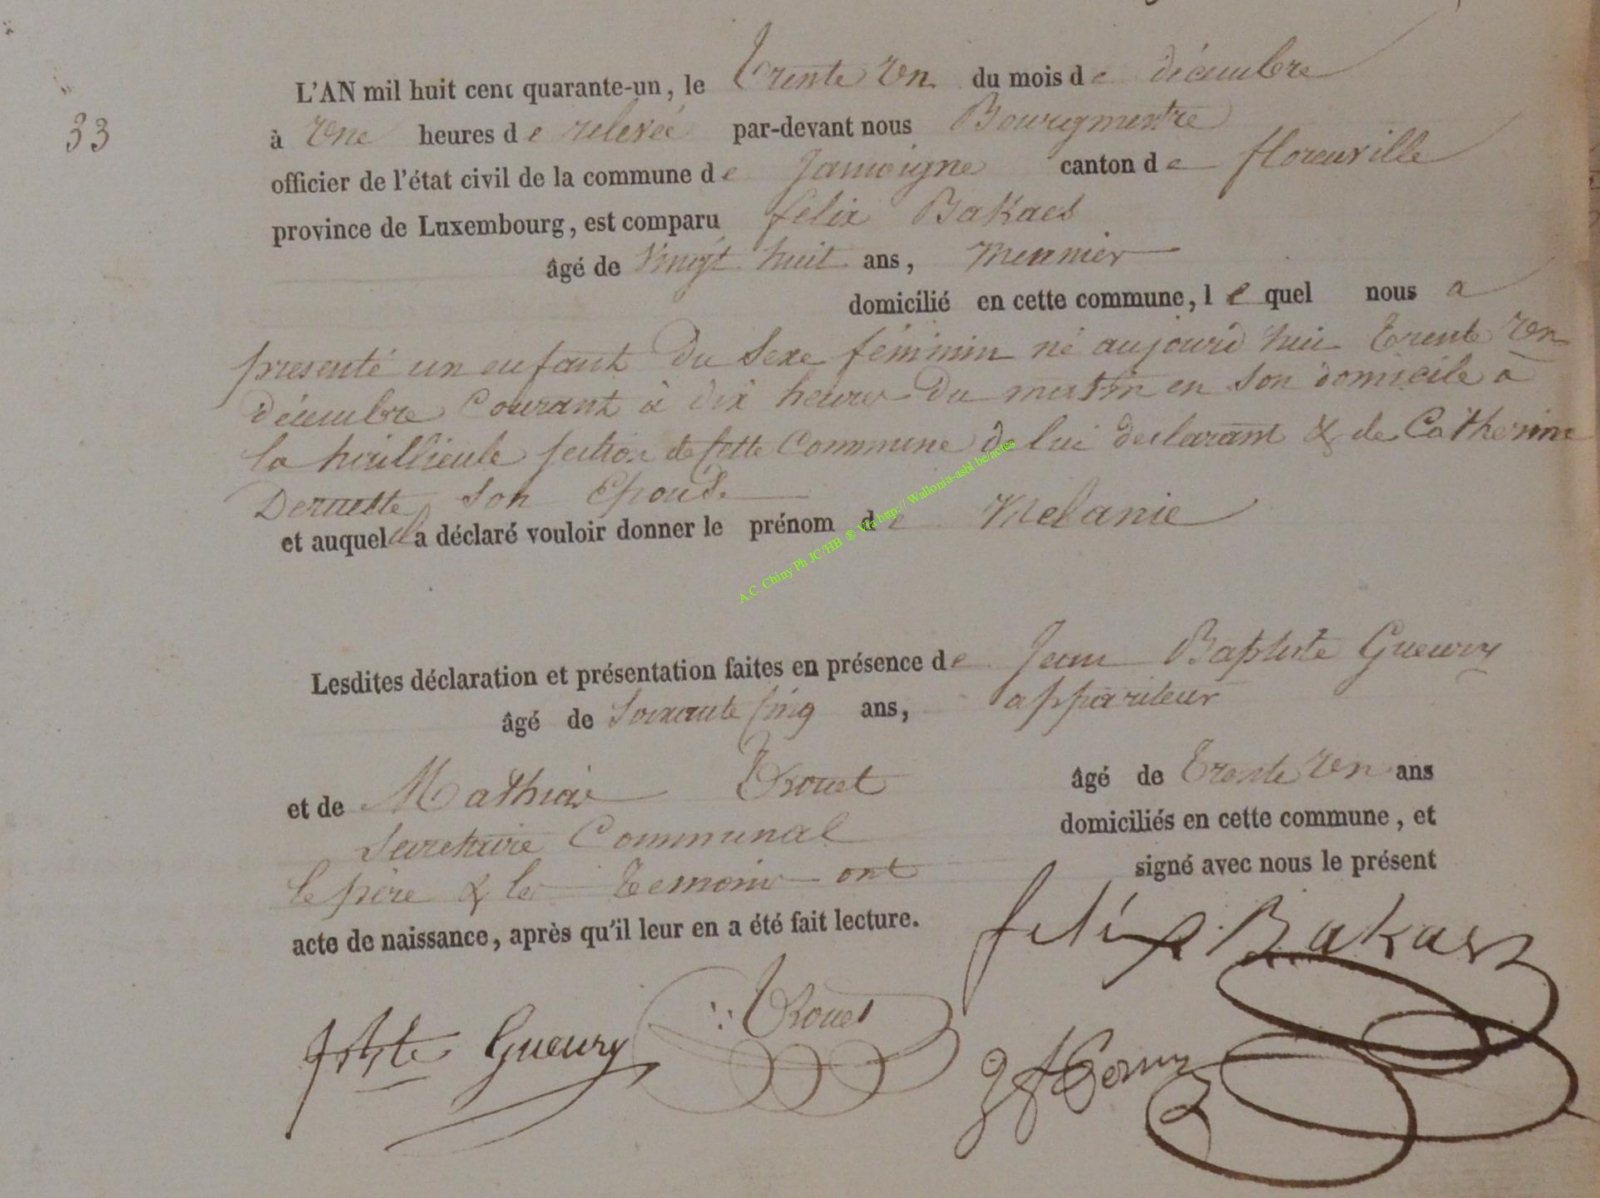 33
L'AN mil huit cent quarante-un, le trente un du mois de décembre
à une heures de relevée par-devant nous Bourgmestre
officier de l'état civil de la commune de Jamoigne canton de florenville
province de Luxembourg, est comparu felix Bakaes
âgé de vingt huit ans, meunier
domicilié en cette commune, lequel nous a
presenté un enfant du sexe féminin né aujourd'hui trente un
décembre courant à dix heures du matin en son domicile à
la section de cette commune de lui declarant & de Catherine
son Epouse
et auquel il a déclaré vouloir donner le prénom de Melanie
A.C. Chiny Ph JC/HH ® Via http://Wallonia-asbl.be/actes
Lesdites déclaration et présentation faites en présence de Jean Baptiste Gueury
âgé de Soixante cinq ans, appariteur
et de Mathias Trouet âgé de trente un ans
Secretaire Communal domiciliés en cette commune, et
le père & les temoins ont signé avec nous le présent
acte de naissance, après qu'il leur en a été fait lecture.
felix Bakaes
Gueury Trouet